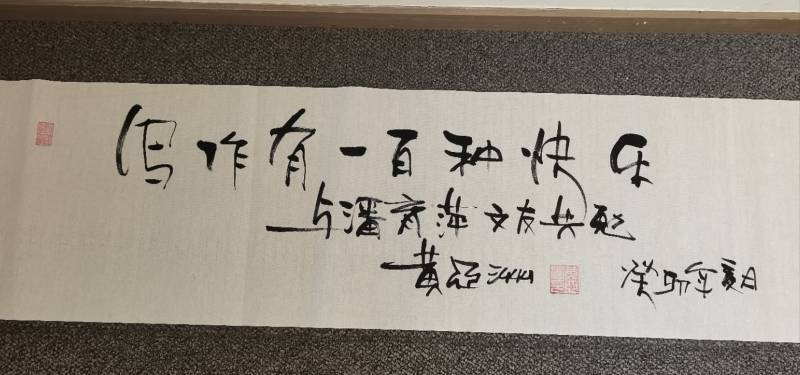 写作有一百种快乐
与潘 萍文友共勉
黄亚洲 癸卯年夏日